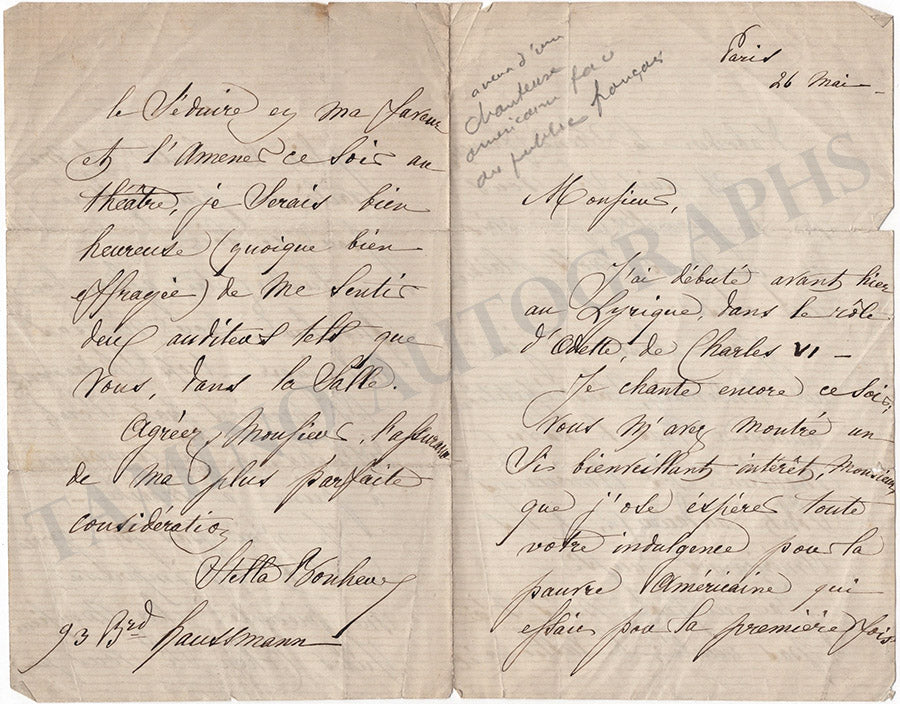 Paris
26 Mai
Monsieur,
J'ai débuté avant hier
au Lyrique, dans le rôle
d'Odette, de Charles VI –
Je chante encore ce soir,
Vous m'avez montré un
si bienveillant intérêt, Monsieur,
que j'ose éspérer toute
votre indulgence pour la
pauvre Américaine qui
essaie pour la première fois
le Séduire en ma faveur
et l'Amener ce soir au
théâtre, je Serais bien
heureuse (quoique bien
effrayée) de me sentir
deux auditeurs tels que
Vous, dans la Salle.
Agréez, Monsieur, l'assurance
de ma plus parfaite
considération
Stella Bonheur
93 Brd Haussmann
d'une
chanteuse
américaine
au public français
TAMINO AUTOGRAPHS